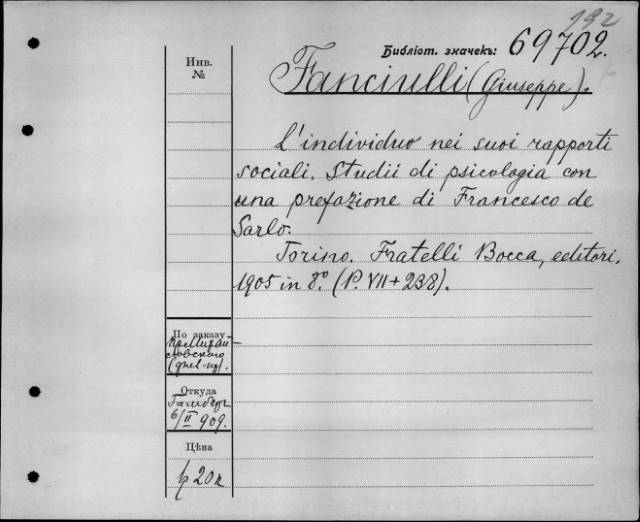 192
Библіот. значекъ: 69702.
Инв.
№
Fanciulli (Giuseppe).
L'individuo nei suoi rapporti
sociali. Studii di psicologia con
una prefazione di Francesco de
Sarlo.
Torino. Fratelli Bocca, editori.
1905 in 8º. (P. VII + 238).
По заказу
Откуда
6/II 909.
Цѣна